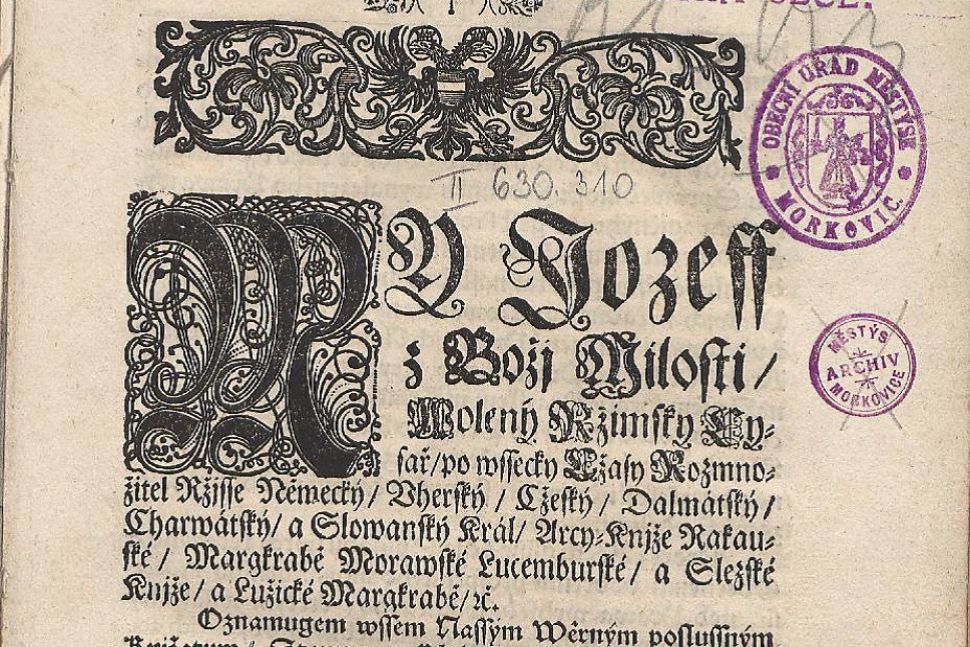 II 630.310
OBECNÍ ÚŘAD MĚSTYSE
MORKOVIC.
MY Jozeff
z Božj Milosti /
Wolený Ržimský Cy-
sař / po wssecky Cžasy Rozmno-
žitel Ržjsse Německý / Vherský / Cžeský / Dalmátský /
Charwátský / a Slowanský Král / Arcy-Knjže Rakau-
ské / Margkrabě Morawské Lucemburské / a Slezské
Knjže / a Lužické Margkrabě / ꝛč.
MĚSTYS
ARCHIV
MORKOVICE
Oznamugem wssem Nassým Wěrným poslussným